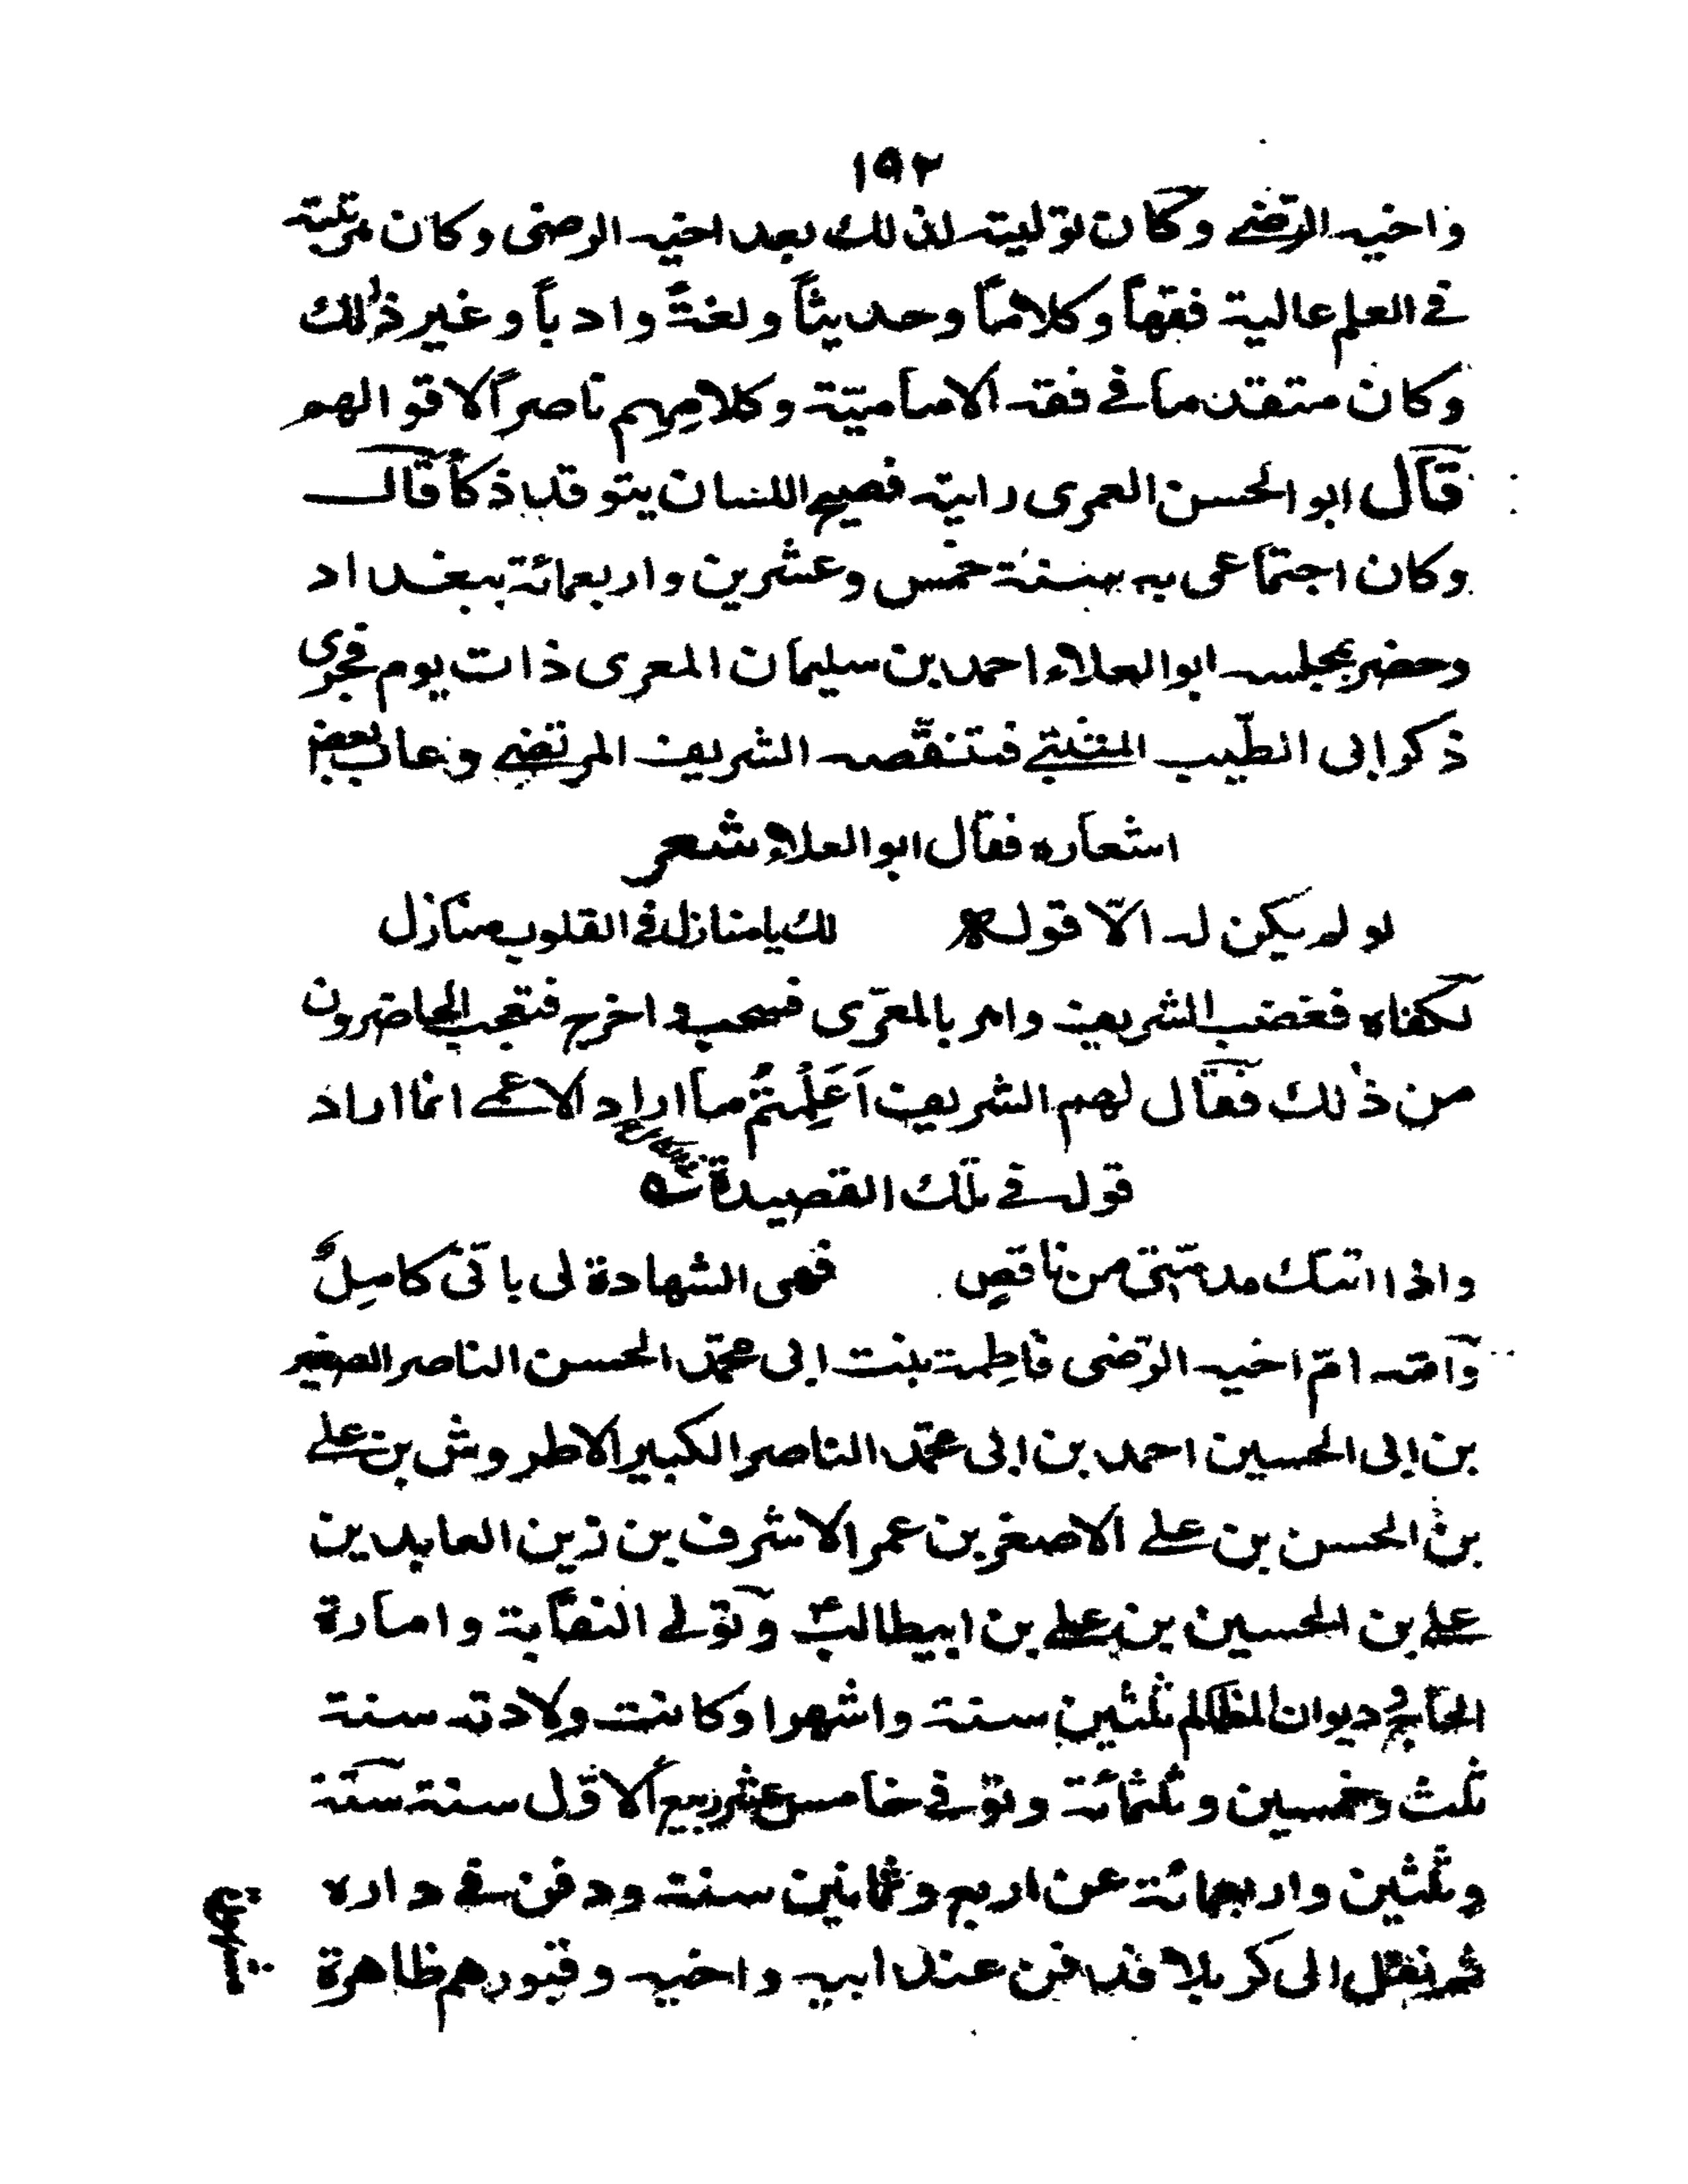 ١٩٢
واخيه الرضي وكان توليته لذلك بعد اخيه الرضى وكان مرتبته
في العلم عالية فقهاً وكلاماً وحديثاً ولغةً وادباً وغير ذٰلك
وكان متقدما في فقه الاماميّة وكلامِهِم ناصراً لاقوالهم
قال ابو الحسن العمرى رايته فصيح اللسان يتوقد ذكاً قال
وكان اجتماعى به سنة خمس وعشرين واربعمائة ببغداد
وحضر بمجلسه ابو العلاء احمد بن سليمان المعرى ذات يوم فجرى
ذكر ابى الطّيب المتنبّي فتنقّصه الشريف المرتضي وعاب بعض
اشعاره فقال ابو العلاء شعر
لو لم يكن له الّا قوله لك يا منازل في القلوب منازل
لكفاه فغضب الشريف وامر بالمعرّى فسحب واخرج فتعجب الحاضرون
من ذٰلك فقال لهم الشريف اَعَلِمْتُم ما اراد الاعمي انما اراد
قوله في تلك القصيدة
واذا اتتك مذمّتى من ناقصٍ فهى الشهادة لى بانّى كامِلٌ
وامّه امّ اخيه الرّضى فاطِمة بنت ابى محمّد الحسن الناصر الصغير
بن ابى الحسين احمد بن ابى محمّد الناصر الكبير الاطروش بن علي
بن الحسن بن علي الاصغر بن عمر الاشرف بن زين العابدين
علي بن الحسين بن علي بن ابيطالب؏ وتولي النقابة وامارة
الحاج وديوان المظالم ثلثين سنة واشهرا وكانت ولادته سنة
ثلث وخمسين وثلثمائة وتوفي خامس عشر ربيع الاوّل سنة ستة
وثلثين واربعمائة عن اربع وثمانين سنة ودفن في داره
ثم نقل الى كربلا فدفن عند ابيه واخيه وقبورهم ظاهرة